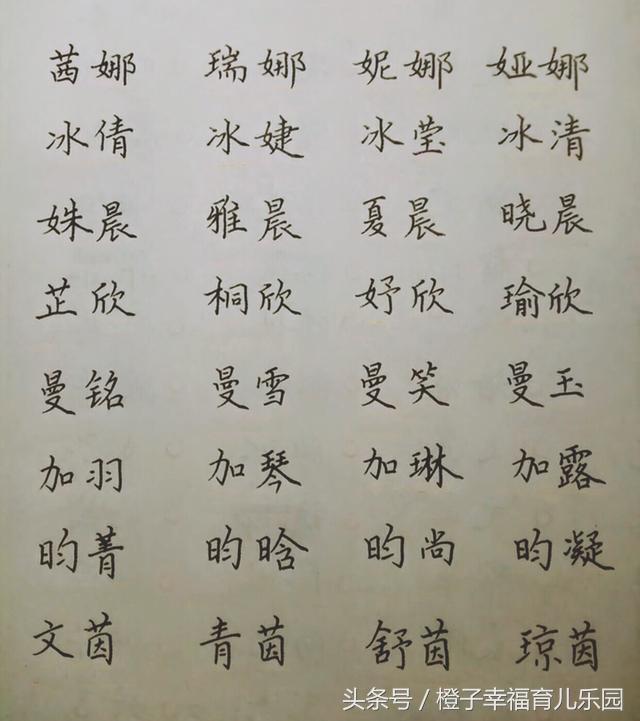 茜娜 瑞娜 妮娜 娅娜
冰倩 冰婕 冰莹 冰清
姝晨 雅晨 夏晨 晓晨
芷欣 桐欣 妤欣 瑜欣
曼铭 曼雪 曼笑 曼玉
加羽 加琴 加琳 加露
昀菁 昀晗 昀尚 昀凝
文茵 青茵 舒茵 琼茵
头条号 / 橙子幸福育儿乐园